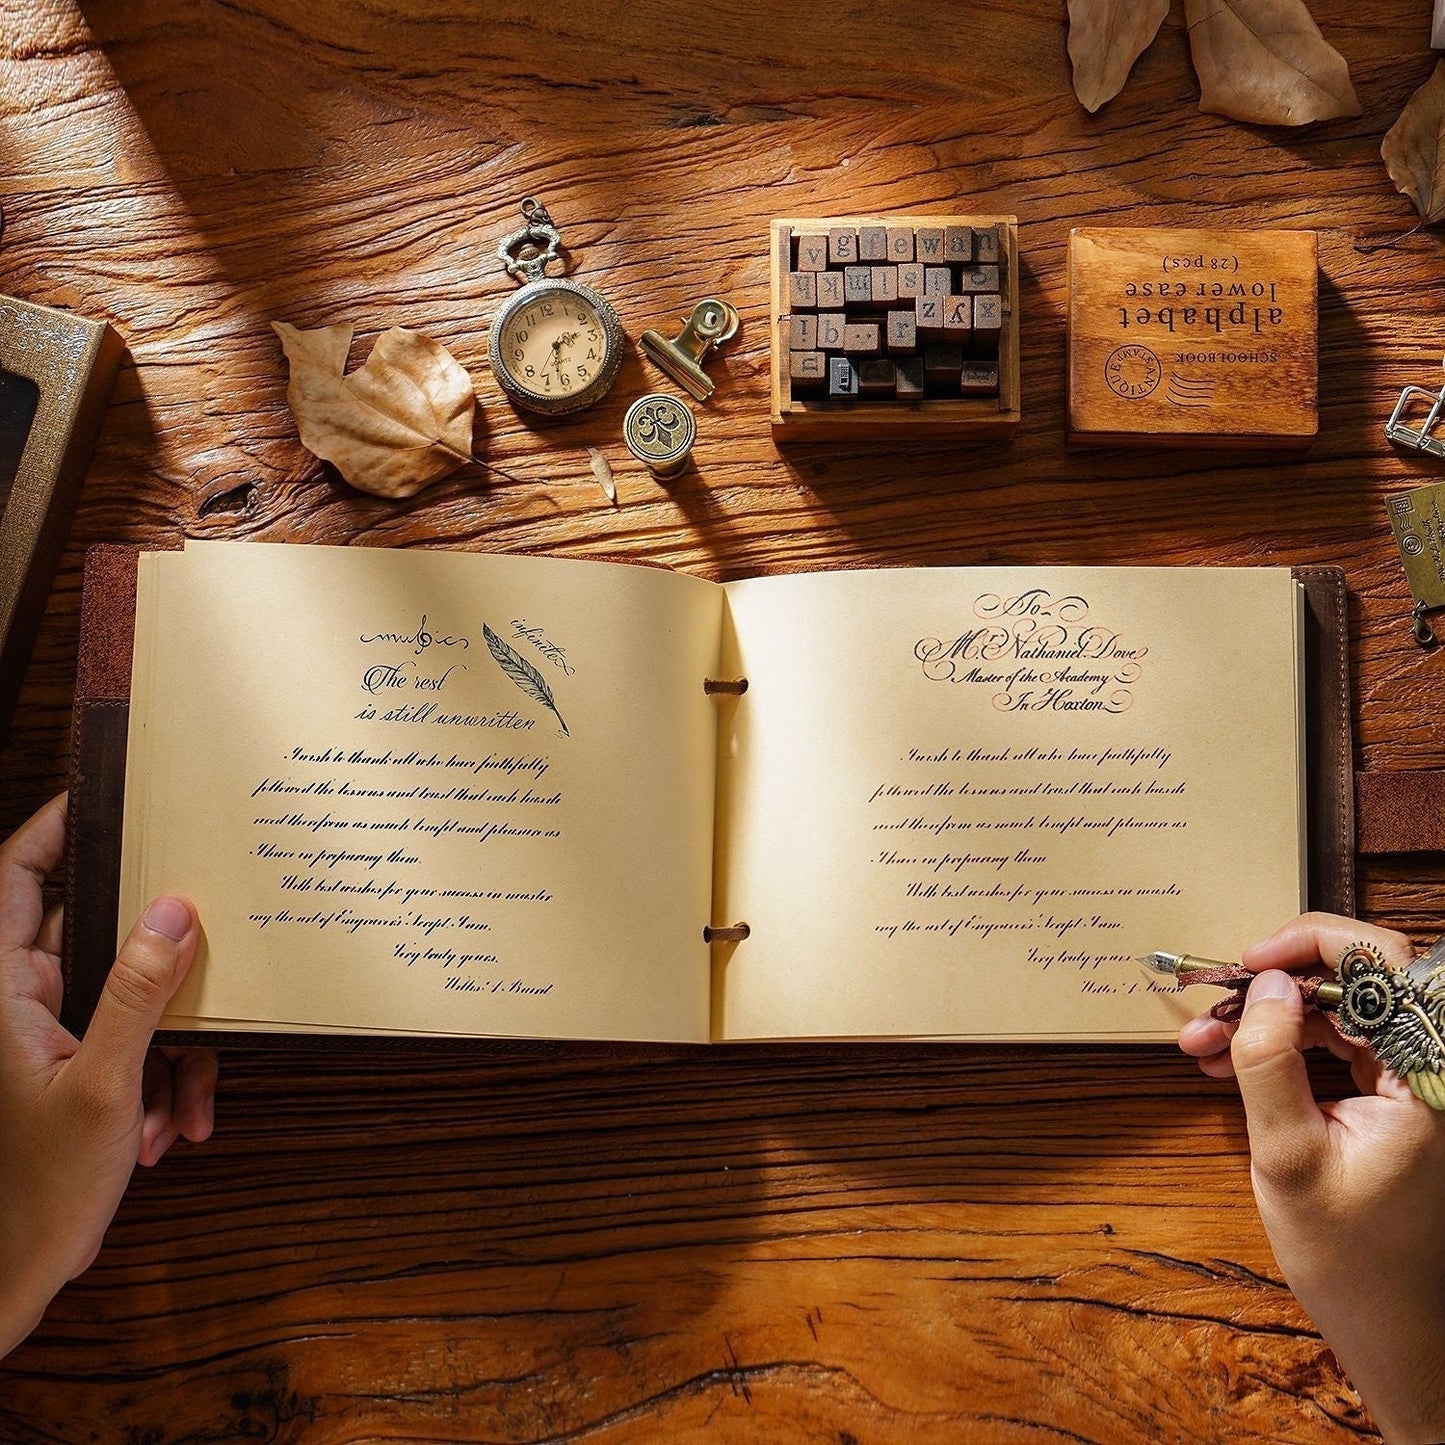 12
1
2
3
4
5
6
7
8
9
10
11
QUARTZ
v g f e w a n
k m l s
z y x
! b . . r
alphabet
lower case
(28 pcs)
SCHOOLBOOK
ANTIQUE STAMP
music
infinite
The rest
is still unwritten
I wish to thank all who have faithfully
followed the lessons and trust that each has de
rived therefrom as much benefit and pleasure as
I have in preparing them.
With best wishes for your success in master
ing the art of Engravers' Script, I am.
Very truly yours.
To
Mr. Nathaniel Dove
Master of the Academy
In Hoxton
I wish to thank all who have faithfully
followed the lessons and trust that each has de
rived therefrom as much benefit and pleasure as
I have in preparing them
With best wishes for your success in master
ing the art of Engravers' Script, I am.
Very truly yours